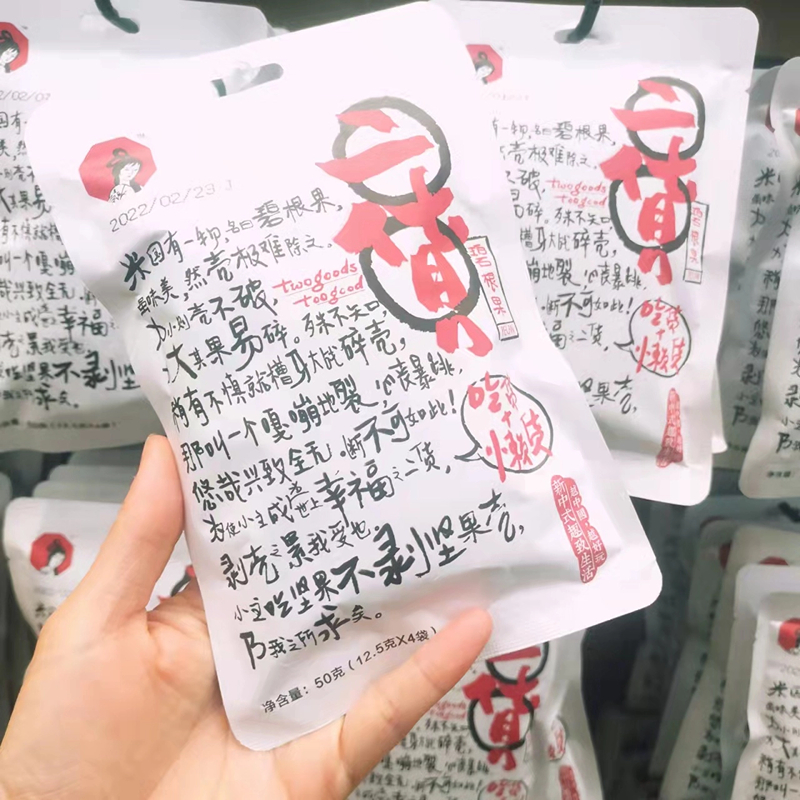 2022/02/23 J
米国有一物,名曰碧根果,
虽味美,然壳极难除之。
力小则壳不破,
力大其果易碎。殊不知口,
稍有不慎就槽牙大战碎壳,
那叫一个嘎嘣地裂,心丧暴跳,
悠哉兴致全无。断不可如此!
为使小主成为世上幸福之二货,
剥壳之累我受也,
小主吃坚果不剥坚果壳,
乃我之所求矣。
净含量:50克(12.5克X4袋)
二货
twogoods
toogood
碧根果
吃货
+
懒货
越中国,越好玩
新中式趣致生活